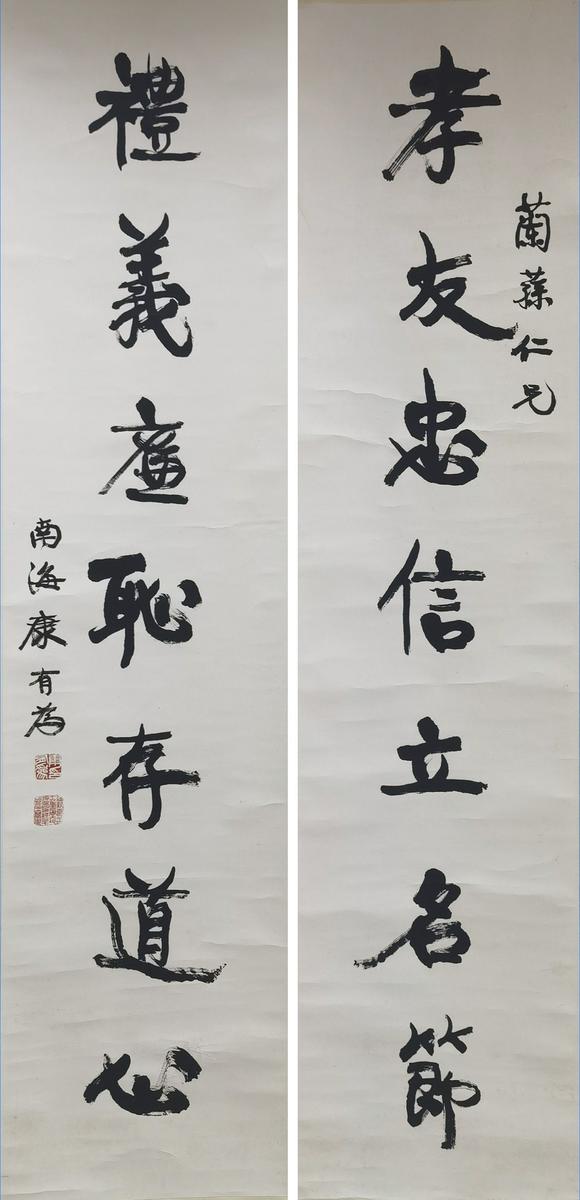 蘭蓀仁兄
孝友忠信立名節
禮義廉恥存道心
南海康有為